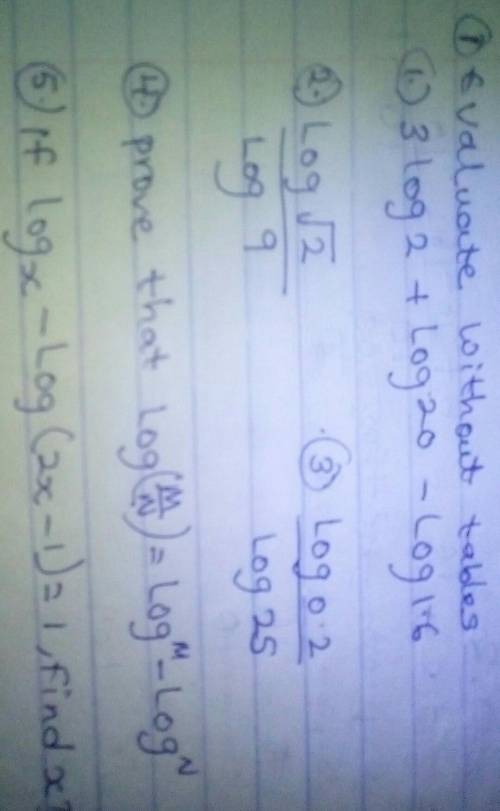 ① Evaluate without tables
(1.) 3 log 2 + Log 20 - Log 1.6
(2.) Log √2 / Log 9 (3) Log 0.2 / Log 25
(4.) prove that Log(M/N) = Log M - Log N
(5.) If Log x - Log(2x - 1) = 1, find x?